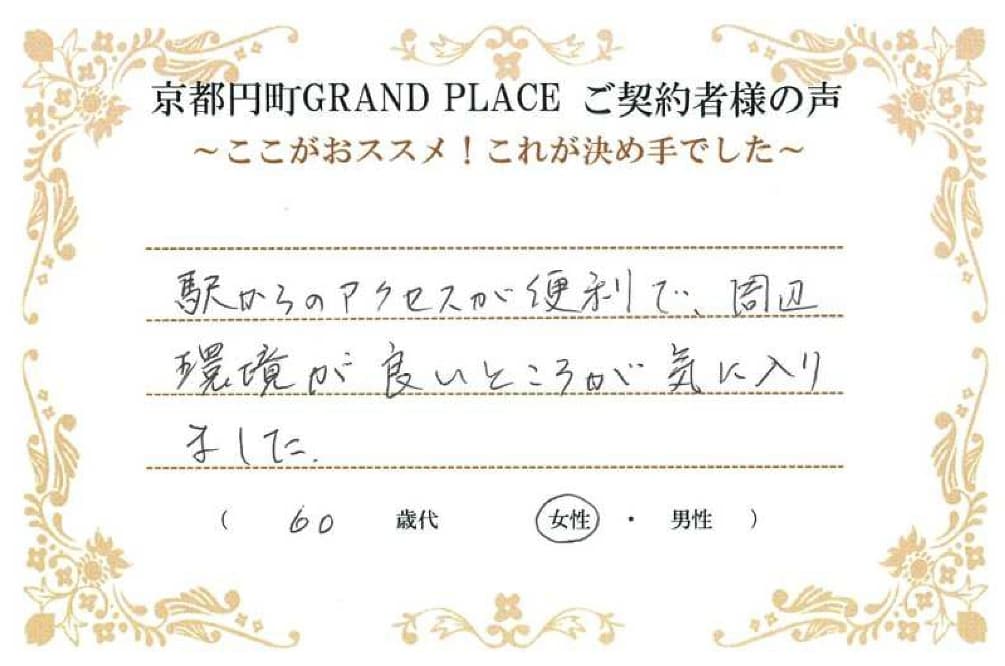 京都円町GRAND PLACE ご契約者様の声
～ここがおススメ！これが決め手でした～
駅からのアクセスが便利で、周辺
環境が良いところが気に入り
ました.
（ 60 歳代 女性 ・ 男性 ）